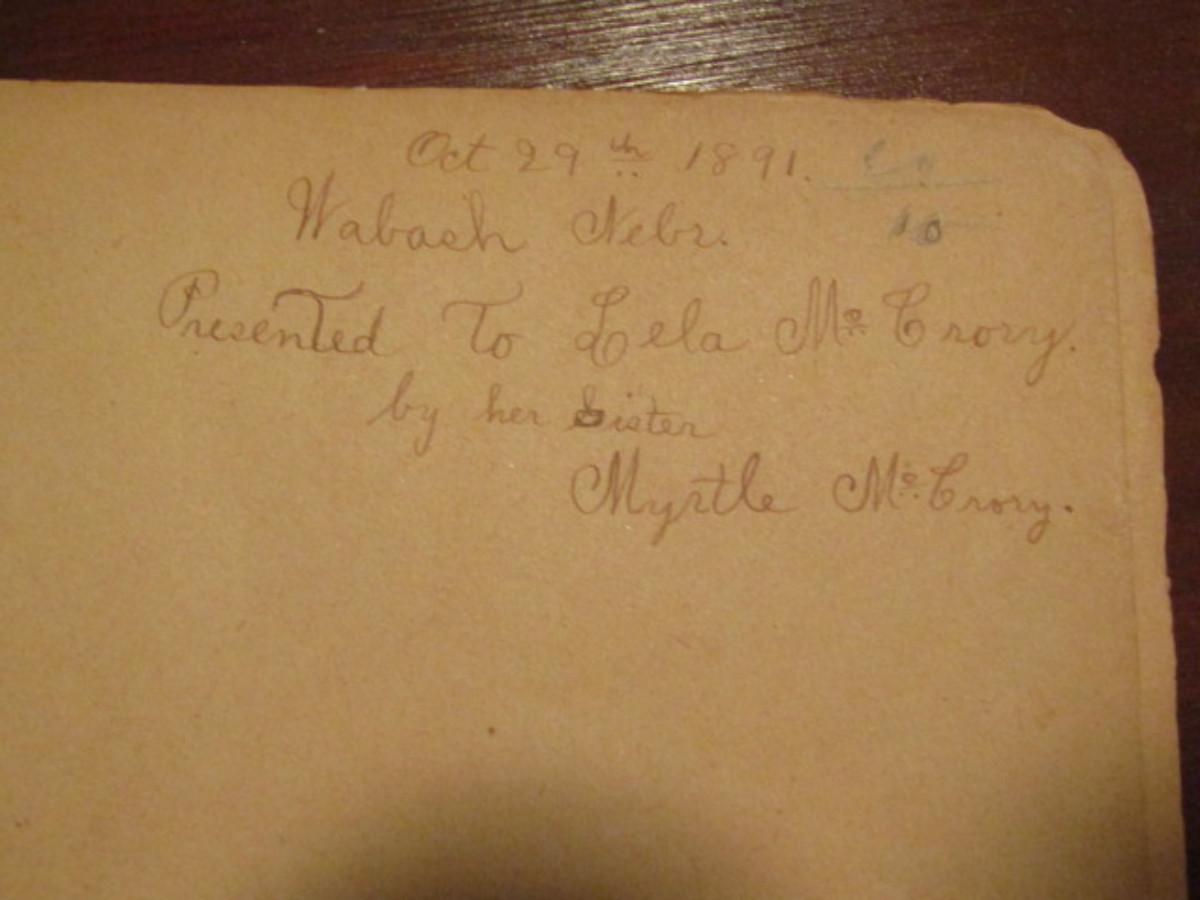 Oct 29th 1891.
10
Wabash Nebr.
Presented To Lela Mc Crory.
by her Sister
Myrtle Mc Crory.